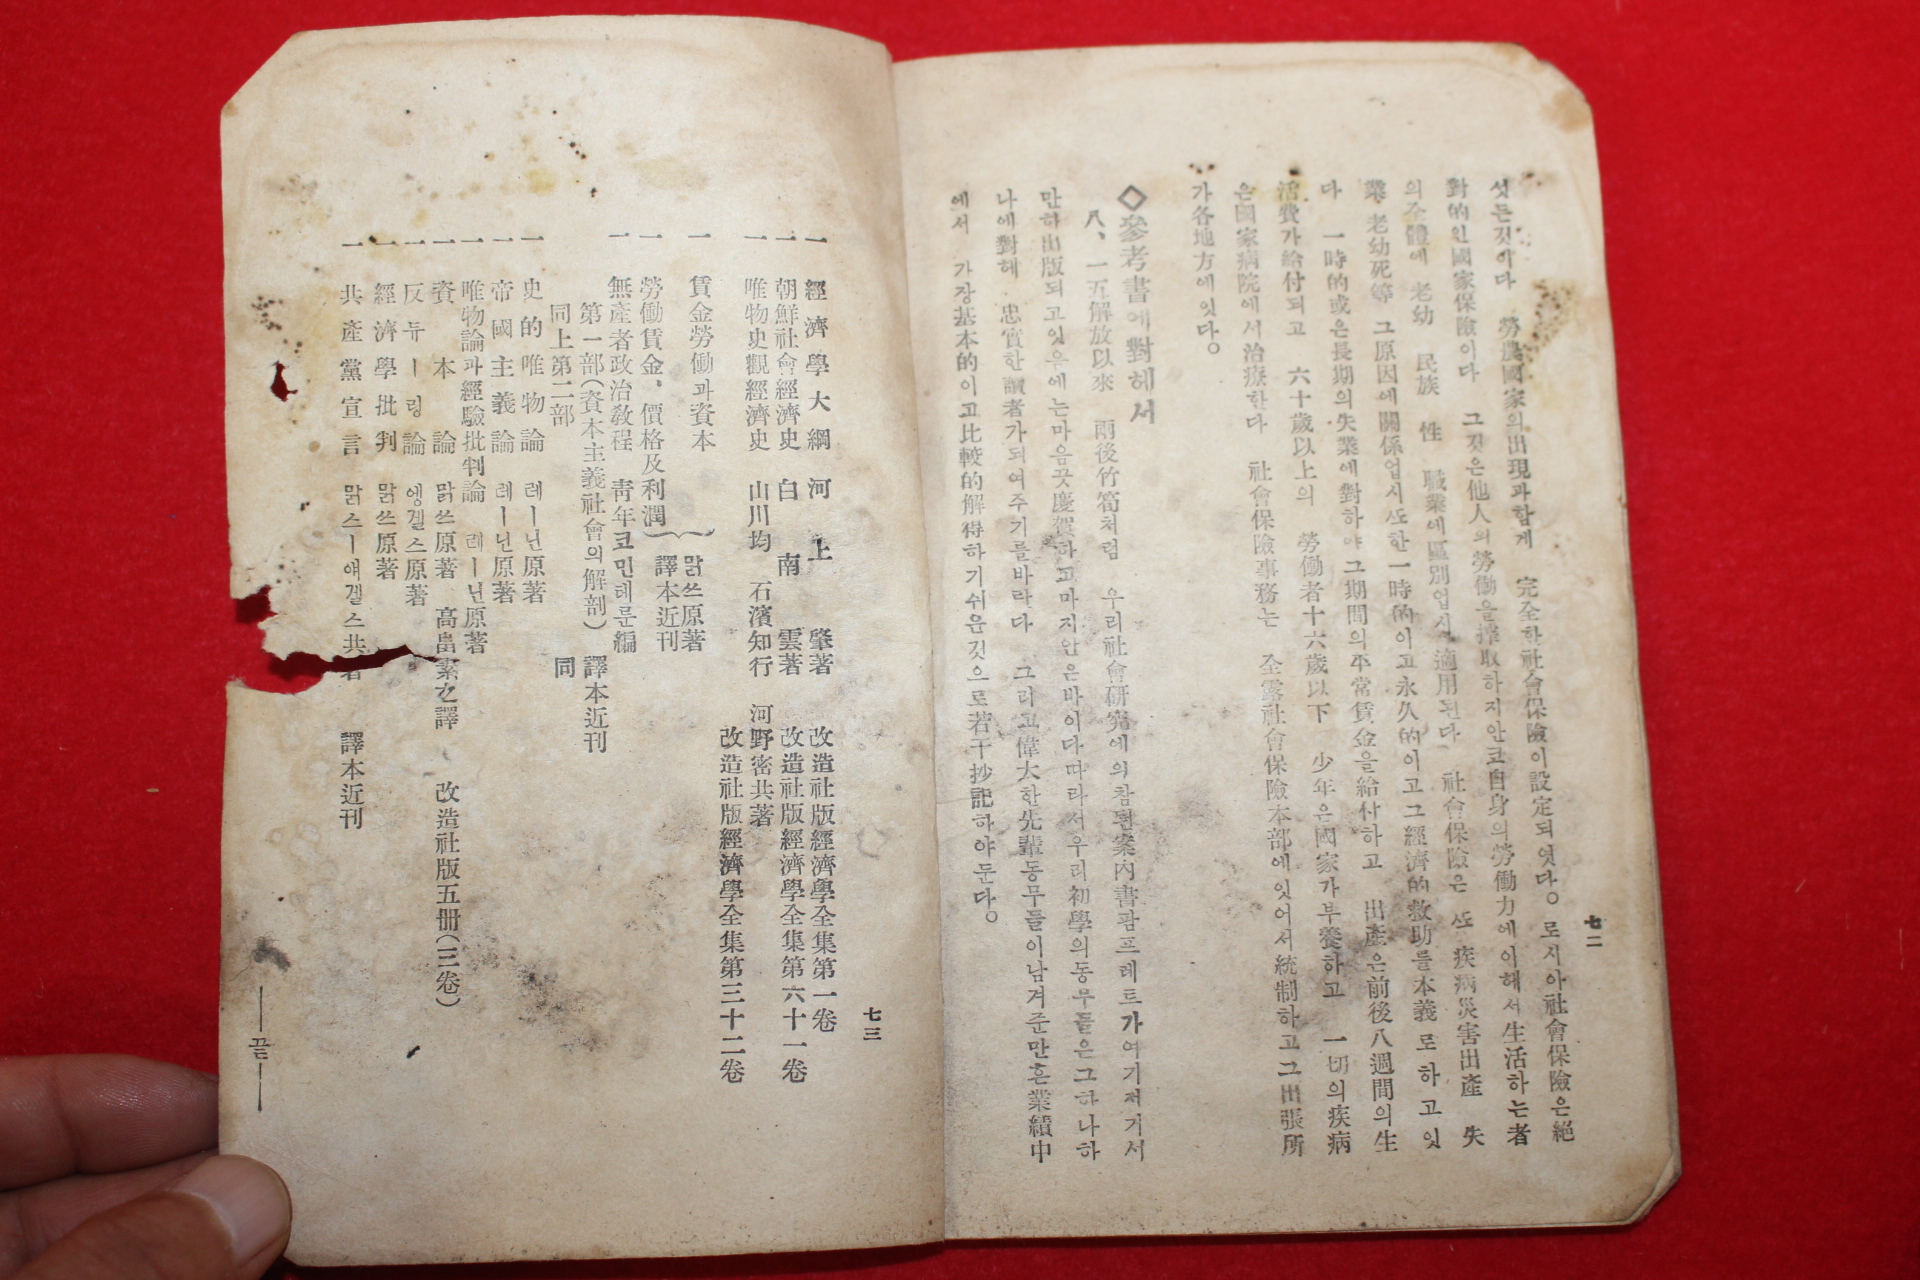 七二
섯든것이다 勞農國家의出現과함게 完全한社會保險이設定되엿다。로시아社會保險은絕
對的인國家保險이다 그것은他人의勞働을搾取하지안코自身의勞働力에이해서生活하는者
의全體에 老幼 民族 性 職業에區別업시適用된다 社會保險은 ᄯᅩ疾病災害出產 失
業 老幼死等 그原因에關係업시ᄯᅩ한一時的이고永久的이고그經濟的救助를本義로하고잇
다 一時的或은長期의失業에對하야그期間의平常賃金을給付하고 出產은前後八週間의生
活費가給付되고 六十歲以上의 勞働者十六歲以下 少年은國家가부養하고 一切의疾病
은國家病院에서治療한다 社會保險事務는 全露社會保險本部에잇어서統制하고그出張所
가各地方에잇다。
◇參考書에對헤서
八、一五解放以來 雨後竹筍처럼 우리社會硏究에의참된案內書팜프레트가여기저기서
만하出版되고잇슴에는마음끗慶賀하고마지안은바이다따라서우리初學의동무들은그하나하
나에對헤 忠實한讀者가되여주기를바란다 그리고偉大한先輩동무들이남겨준만흔業績中
에서 가장基本的이고比較的解得하기쉬운것으로若干抄記하야둔다。
七三
一 經濟學大綱 河上肇著 改造社版經濟學全集第一卷
一 朝鮮社會經濟史 白南雲著 改造社版經濟學全集第六十一卷
一 唯物史觀經濟史 山川均 石濱知行 河野密共著
改造社版經濟學全集第三十二卷
一 賃金勞働과資本 맑쓰原著
一 勞働賃金、價格及利潤 譯本近刊
一 無產者政治敎程 靑年코민테른編
第一部(資本主義社會의解剖) 譯本近刊
同上第二部 同
一 史的唯物論 레ー닌原著
一 帝國主義論 레ー닌原著
一 唯物論과經驗批判論 레ー닌原著
一 資本論 맑쓰原著 高畠素之譯 改造社版五冊(三卷)
一 反듀ー링論 엥겔스原著
一 經濟學批判 맑쓰原著
一 共產黨宣言 맑스ー에겔스共著 譯本近刊
——끝——